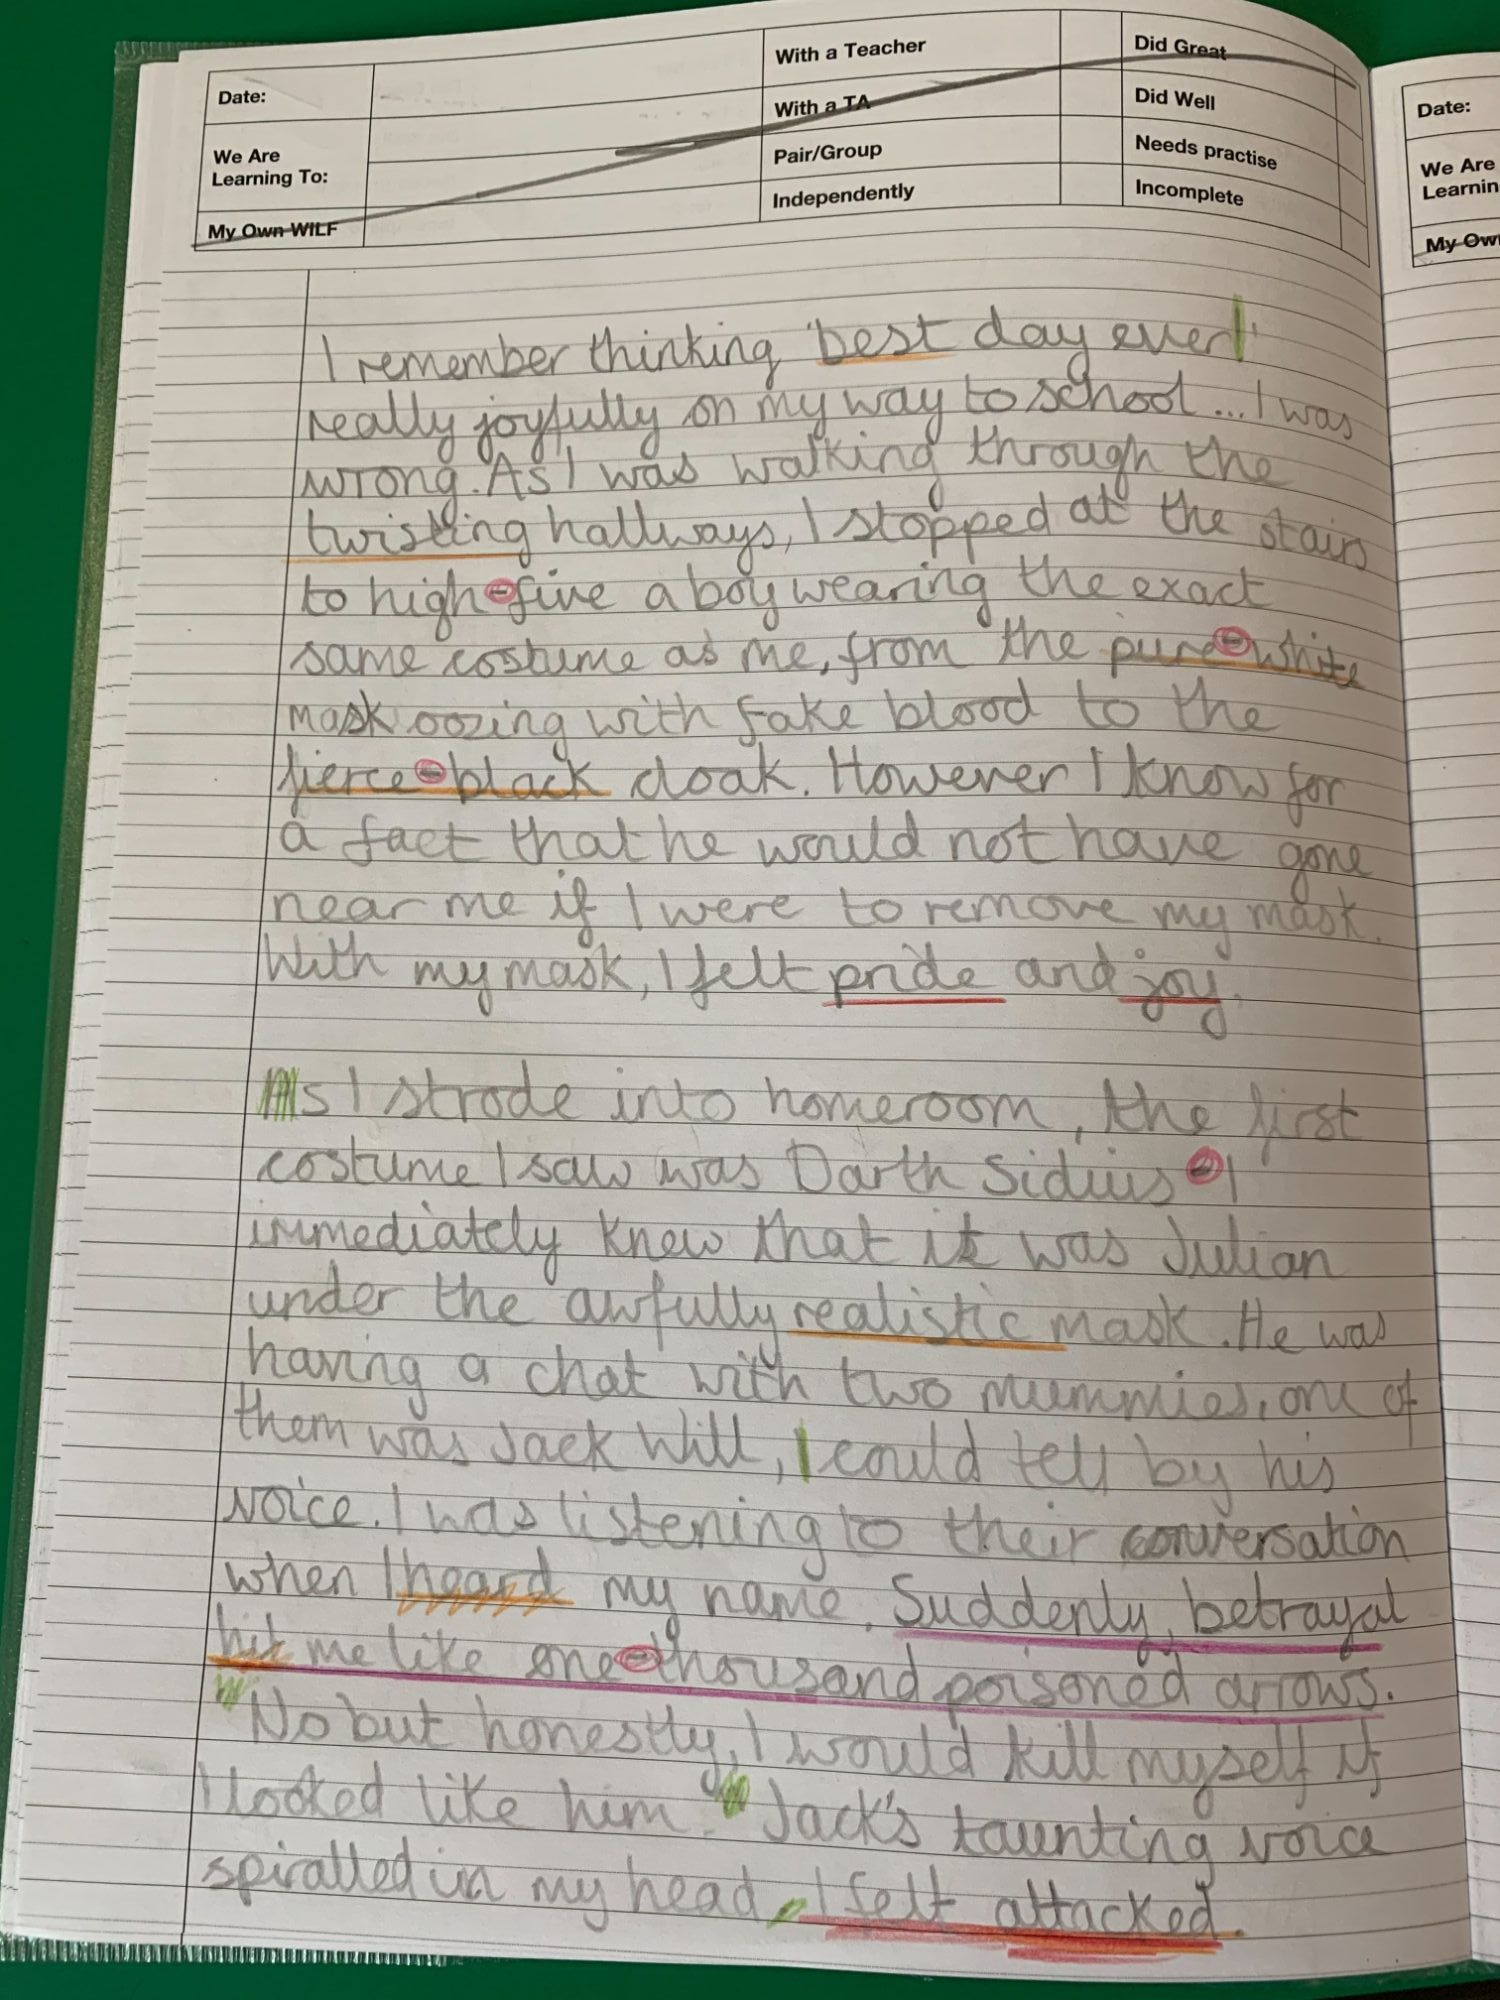 Date:
With a Teacher
Did Great
With a TA
Did Well
We Are
Learning To:
Pair/Group
Needs practise
My Own WILF
Independently
Incomplete
I remember thinking best day ever!
really joyfully on my way to school... I was
wrong. As I was walking through the
twisting hallways, I stopped at the stairs
to high-five a boy wearing the exact
same costume as me, from the pure-white
mask oozing with fake blood to the
fierce-black cloak. However I know for
a fact that he would not have gone
near me if I were to remove my mask.
With my mask, I felt pride and joy.
As I strode into homeroom, the first
costume I saw was Darth Sidius - I
immediately knew that it was Julian
under the awfully realistic mask. He was
having a chat with two mummies, one of
them was Jack Will, I could tell by his
voice. I was listening to their conversation
when I heard my name. Suddenly, betrayal
hit me like one-thousand poisoned arrows.
"No but honestly, I would kill myself if
I looked like him." Jack's taunting voice
spiralled in my head, I felt attacked.
Date:
We Are
Learnin
My Own